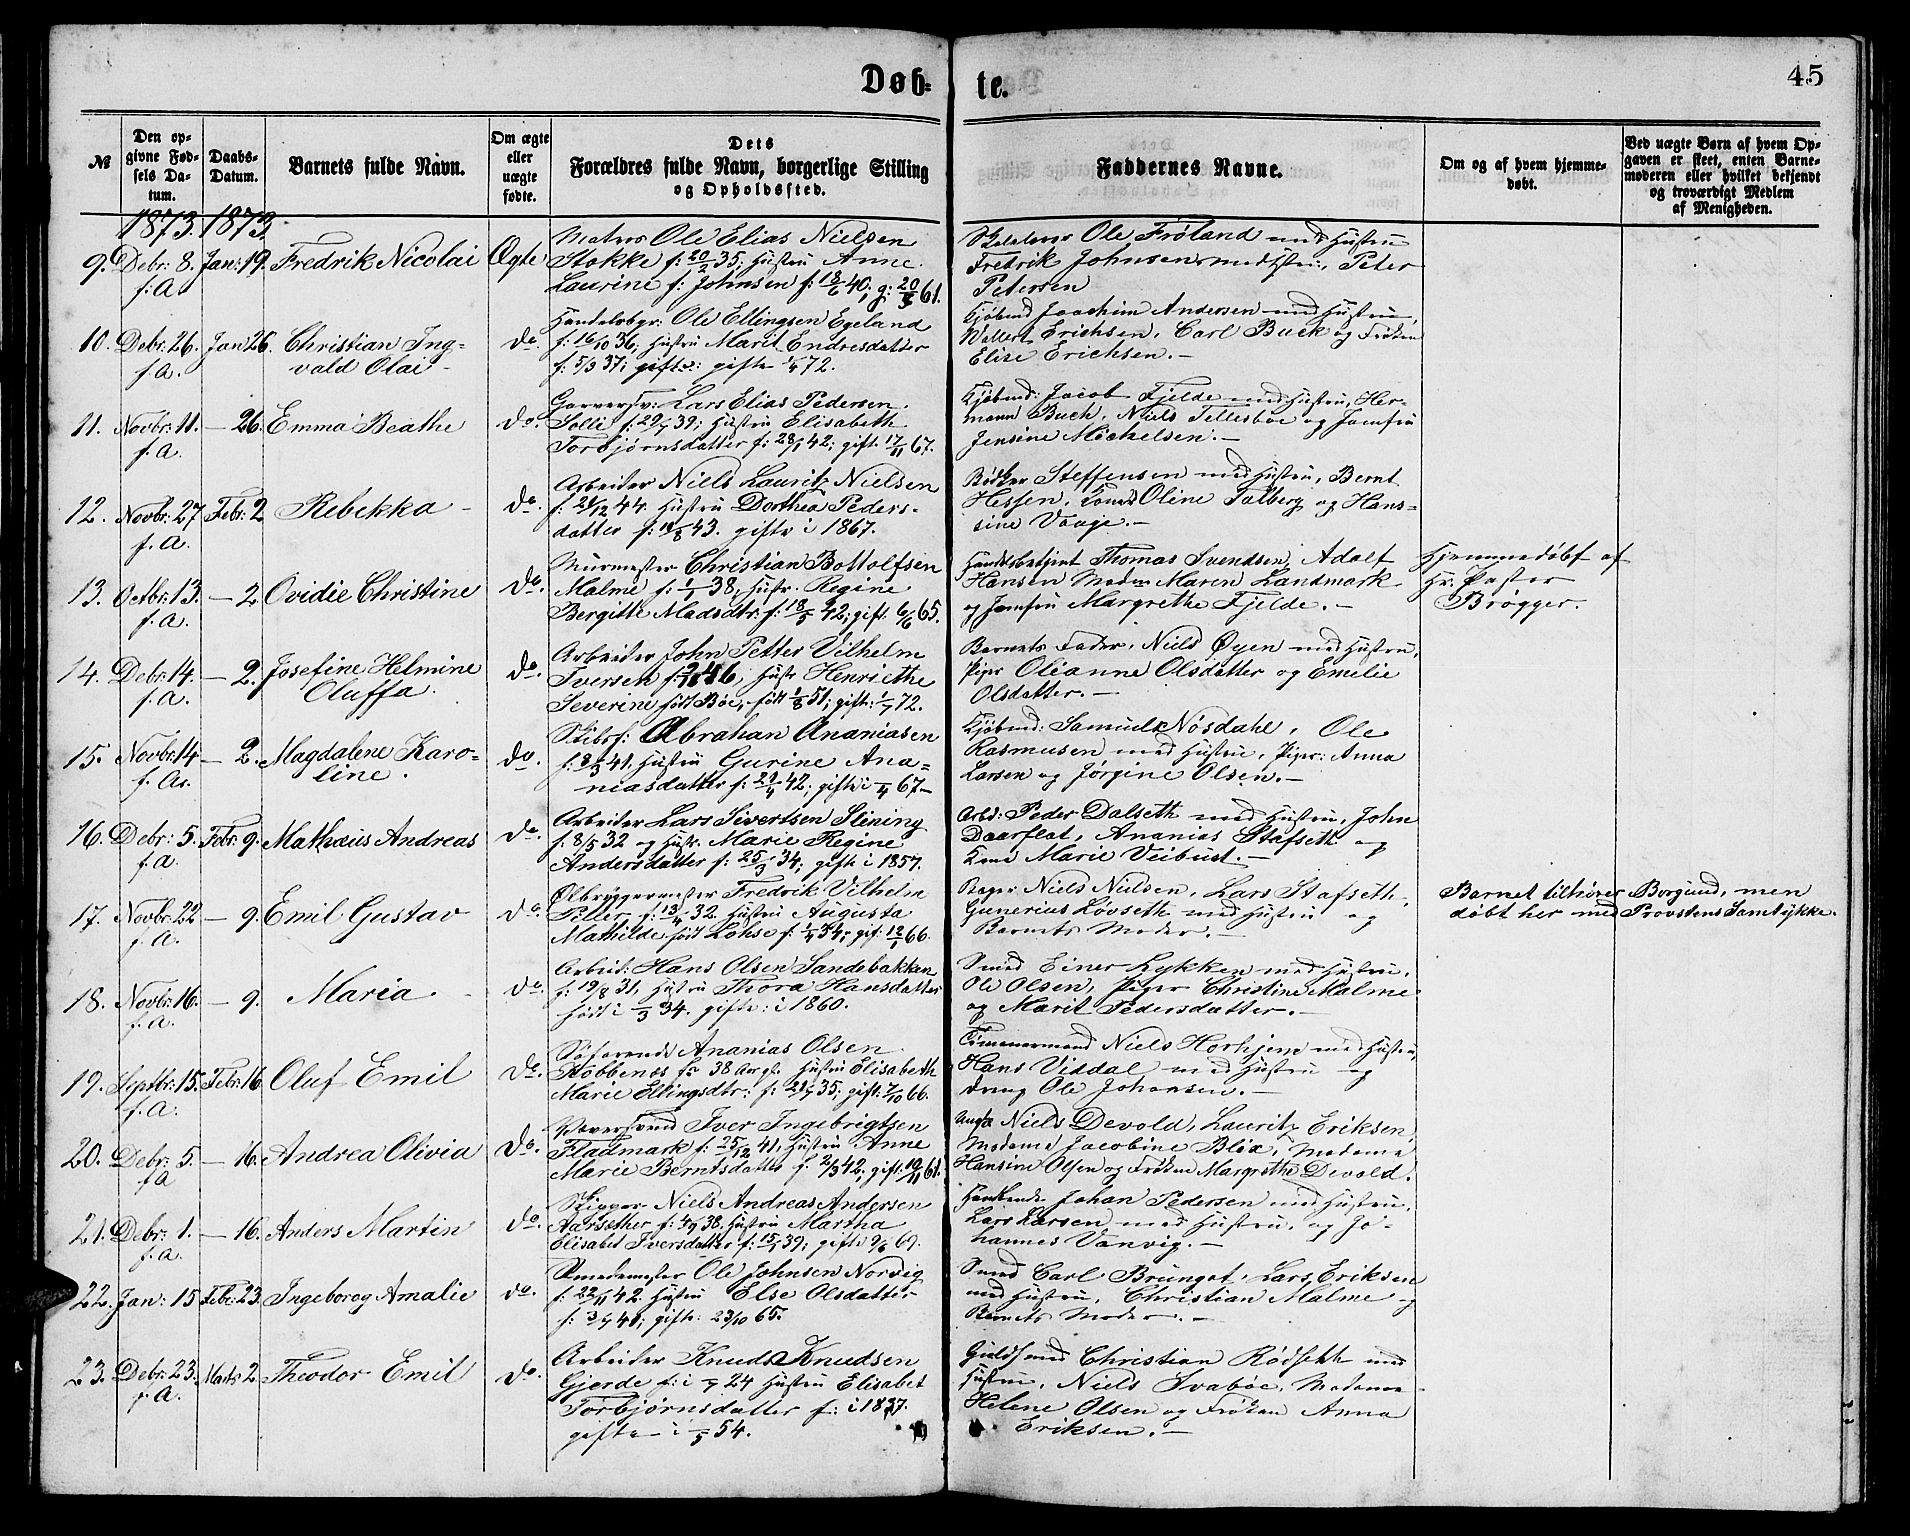 Døb-
te.
45
№
Den op-
givne Fød-
sels Da-
tum.
Daabs-
Datum.
Barnets fulde Navn.
Om ægte
eller
uægte
fødte.
Dets
Forældres fulde Navn, borgerlige Stilling
og Opholdssted.
Faddernes Navne.
Om og af hvem hjemme-
døbt.
Ved uægte Børn af hvem Op-
gaven er skeet, enten Barne-
moderen eller hvilket bekjendt
og troværdigt Medlem
af Menigheden.
1873. 1873
9. Debr: 8. Jan: 19. Fredrik Nicolai Ægte
f: A.
Matros Ole Elias Nielsen
Stokke f: 20/2 35, Hustru Anne
Laurine f: Johnsen f: 18/6 40, g: 20/3 61.
Ole Frøland med Hustru
Fredrik Johnsen med Hstru, Peter
Petersen
10. Debr: 26. Jan 26. Christian Ing-
f. a. vald Olai do.
Handelsbgr: Ole Ellingsen Egeland
f: 16/10 36, Hustru Marit Endresdatter
f: 5/3 37; gifte 1/4 72.
Kjøbmd Joachim Andersen med Hustru,
Erichsen, Carl Buck og Frøken
Elise Erichsen.-
11. Novbr: 11. - 26. Emma Beathe do.
f. a.
Lars Elias Pedersen
Solli f: 29/7 39; Hustru Elisabeth
Torbjørnsdatter f: 28/1 42; gift: 17/11 67.
Kjøbmd: Jacob Fjelde med Hustru, Her-
mann Buch, Niels Tellesbøe og Jomfru
Jensine Mickelsen.-
12. Novbr: 27 Febr: 2 Rebekka - do.
f. a.
Arbeider Niels Lauritz Nielsen
f. 21/12 44. Hustru Dorthea Peders-
datter f: 19/8 43. gifte i 1867.
Steffensen med Hustru, Bernt
Hessen, Oline Talberg og Hans-
sine Vaage.-
13. Octbr: 13. - 2. Ovidie Christine do.
f. a.
Murmester Christian Bottolfsen
Malme f: 1/1 38, Hustr. Regine
Bergitte Madsdtr: f: 18/5 42; gift: 6/6 65.
Thomas Svendsen, Adolf
Hansen Madam Maren Landmark
og Jomfru Margrethe Fjelde.-
Hjemmedøbt af
Hr. Pastor
Brøgger.
14. Debr: 14. - 2. Josefine Helmine
f. a. Oluffa. do.
Arbeider John Petter Vilhelm
Iversen Hustr Henriethe
Severine født Bøe, født 1/8 51; gift: 1/7 72.
Barnets Fader, Niels Øyen med Hustru,
Piger Olianne Olsdatter og Emelie
Olsdatter.-
15. Novbr: 14 - 2. Magdalene Karo-
f. a. line. do.
Skibsf: Abrahan Ananiasen
f: 8/3 41, Hustru Gurine Ana-
niasdatter f: 29/4 42; gifte i /4 67-
Kjøbmd: Samuel Nøsdahl, Ole
Rasmusen med Hustru, Piger: Anna
Larsen og Jørgine Olsen.-
16. Debr: 5. Febr: 9. Mathæus Andreas do.
f. a.
Arbeider Lars Sivertsen Slining
f. 8/5 32 og Hustr. Marie Regine
Andersdatter f: 25/3 34; gift i 1857.
Arbd: Peder Dalseth med Hustru, John
Daarflot, Ananias Stafseth og
Kone Marie Veibust.-
17. Novbr: 22 - 9. Emil Gustav do.
f. A.
Ølbryggermester Fredrik Vilhelm
f: 13/4 32. Hustru Augusta
Mathilde født Lohse f: 1/4 34; gif: 12/1 66.
Bager Niels Nielsen, Lars Stafseth,
Gunerius Løvseth med Hustru og
Barnets Moder.-
Barnet tilhører Borgund, men
døbt her med Provstens Samtykke.
18. Novbr: 16. - 9. Maria do.
f. a.
Arbeid: Hans Olsen Sandebakken
f: 19/8 31, Hustru Thora Hansdatter
født i /3 34. gifte: i 1860.
Smed Einer Lykken med Hustru,
Ole Olsen, Piger Christine Malme
og Marit Pedersdatter.-
19. Septbr: 15. Febr: 16. Oluf Emil do.
f. a.
Søfarende Ananias Olsen
38 Aar gl. Hustru Elisabeth
Marie Ellingsdtr: f: 29/7 35; gift: 7/10 66.
Tømmermand Niels Horhjem med Hustru,
Hans Viddal med Hustru og
dreng Ole Johansen.-
20. Debr: 5. - 16. Andrea Olivia do.
f a
Iver Ingebrigtsen
Fladmark f: 25/12 41, Hustru Anne
Marie Berntsdatter f: 2/3 42, gift: 19/11 61.
Niels Devold, Lauritz Eriksen,
Madame Jacobine Bløe, Madame
Hansine Olsen og Frøken Margrethe Devold.
21. Debr: 1. - 16. Anders Martin do.
f. a.
Skipper Niels Andreas Andersen
Aarsether f: 4/9 38, Hustru Martha
Elisabet Iversdatter f: 15/1 39; gifte 9/6 61.
Johan Pedersen med Hustru,
Lars Larsen med Hustru, og Jo-
hannes Vanvig.-
22. Jan: 15 Febr: 23. Ingeborg Amalie do.
Smedemester Ole Johnsen Norvig
f: 22/11 42. Hustru Else Olsdatter
f: 3/7 41; gifte: 23/10 65.
Smed Carl Brungot, Lars Eriksen
med Hustru, Christian Malme og
Barnets Moder.-
23. Debr: 23. Marts 2. Theodor Emil do.
f. A.
Arbeider Knud Knudsen
Gjerde f: i /7 24 Hustru Elisabet
Torbjørnsdatter f: i 1837.
gifte i /5 54.
Guldsmed Christian Rødseth med
Hustru, Niels Svabøe, Madame
Helene Olsen og Frøken Anna
Eriksen.-